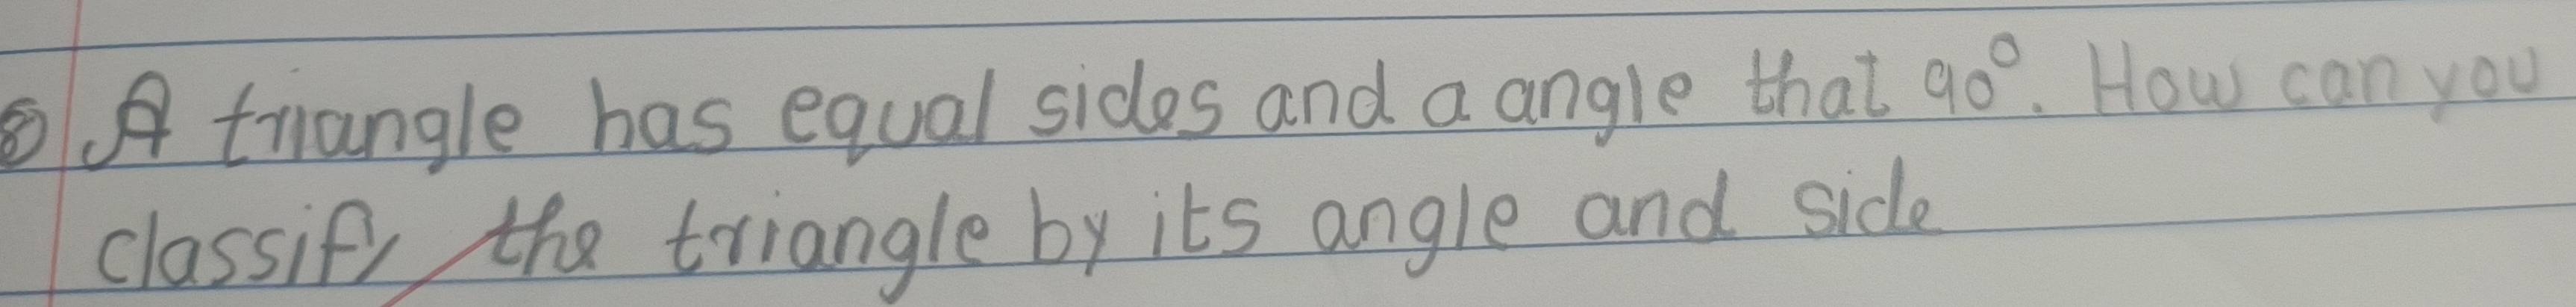 ⑧ A triangle has equal sides and a angle that 90°. How can you
classify the triangle by its angle and side